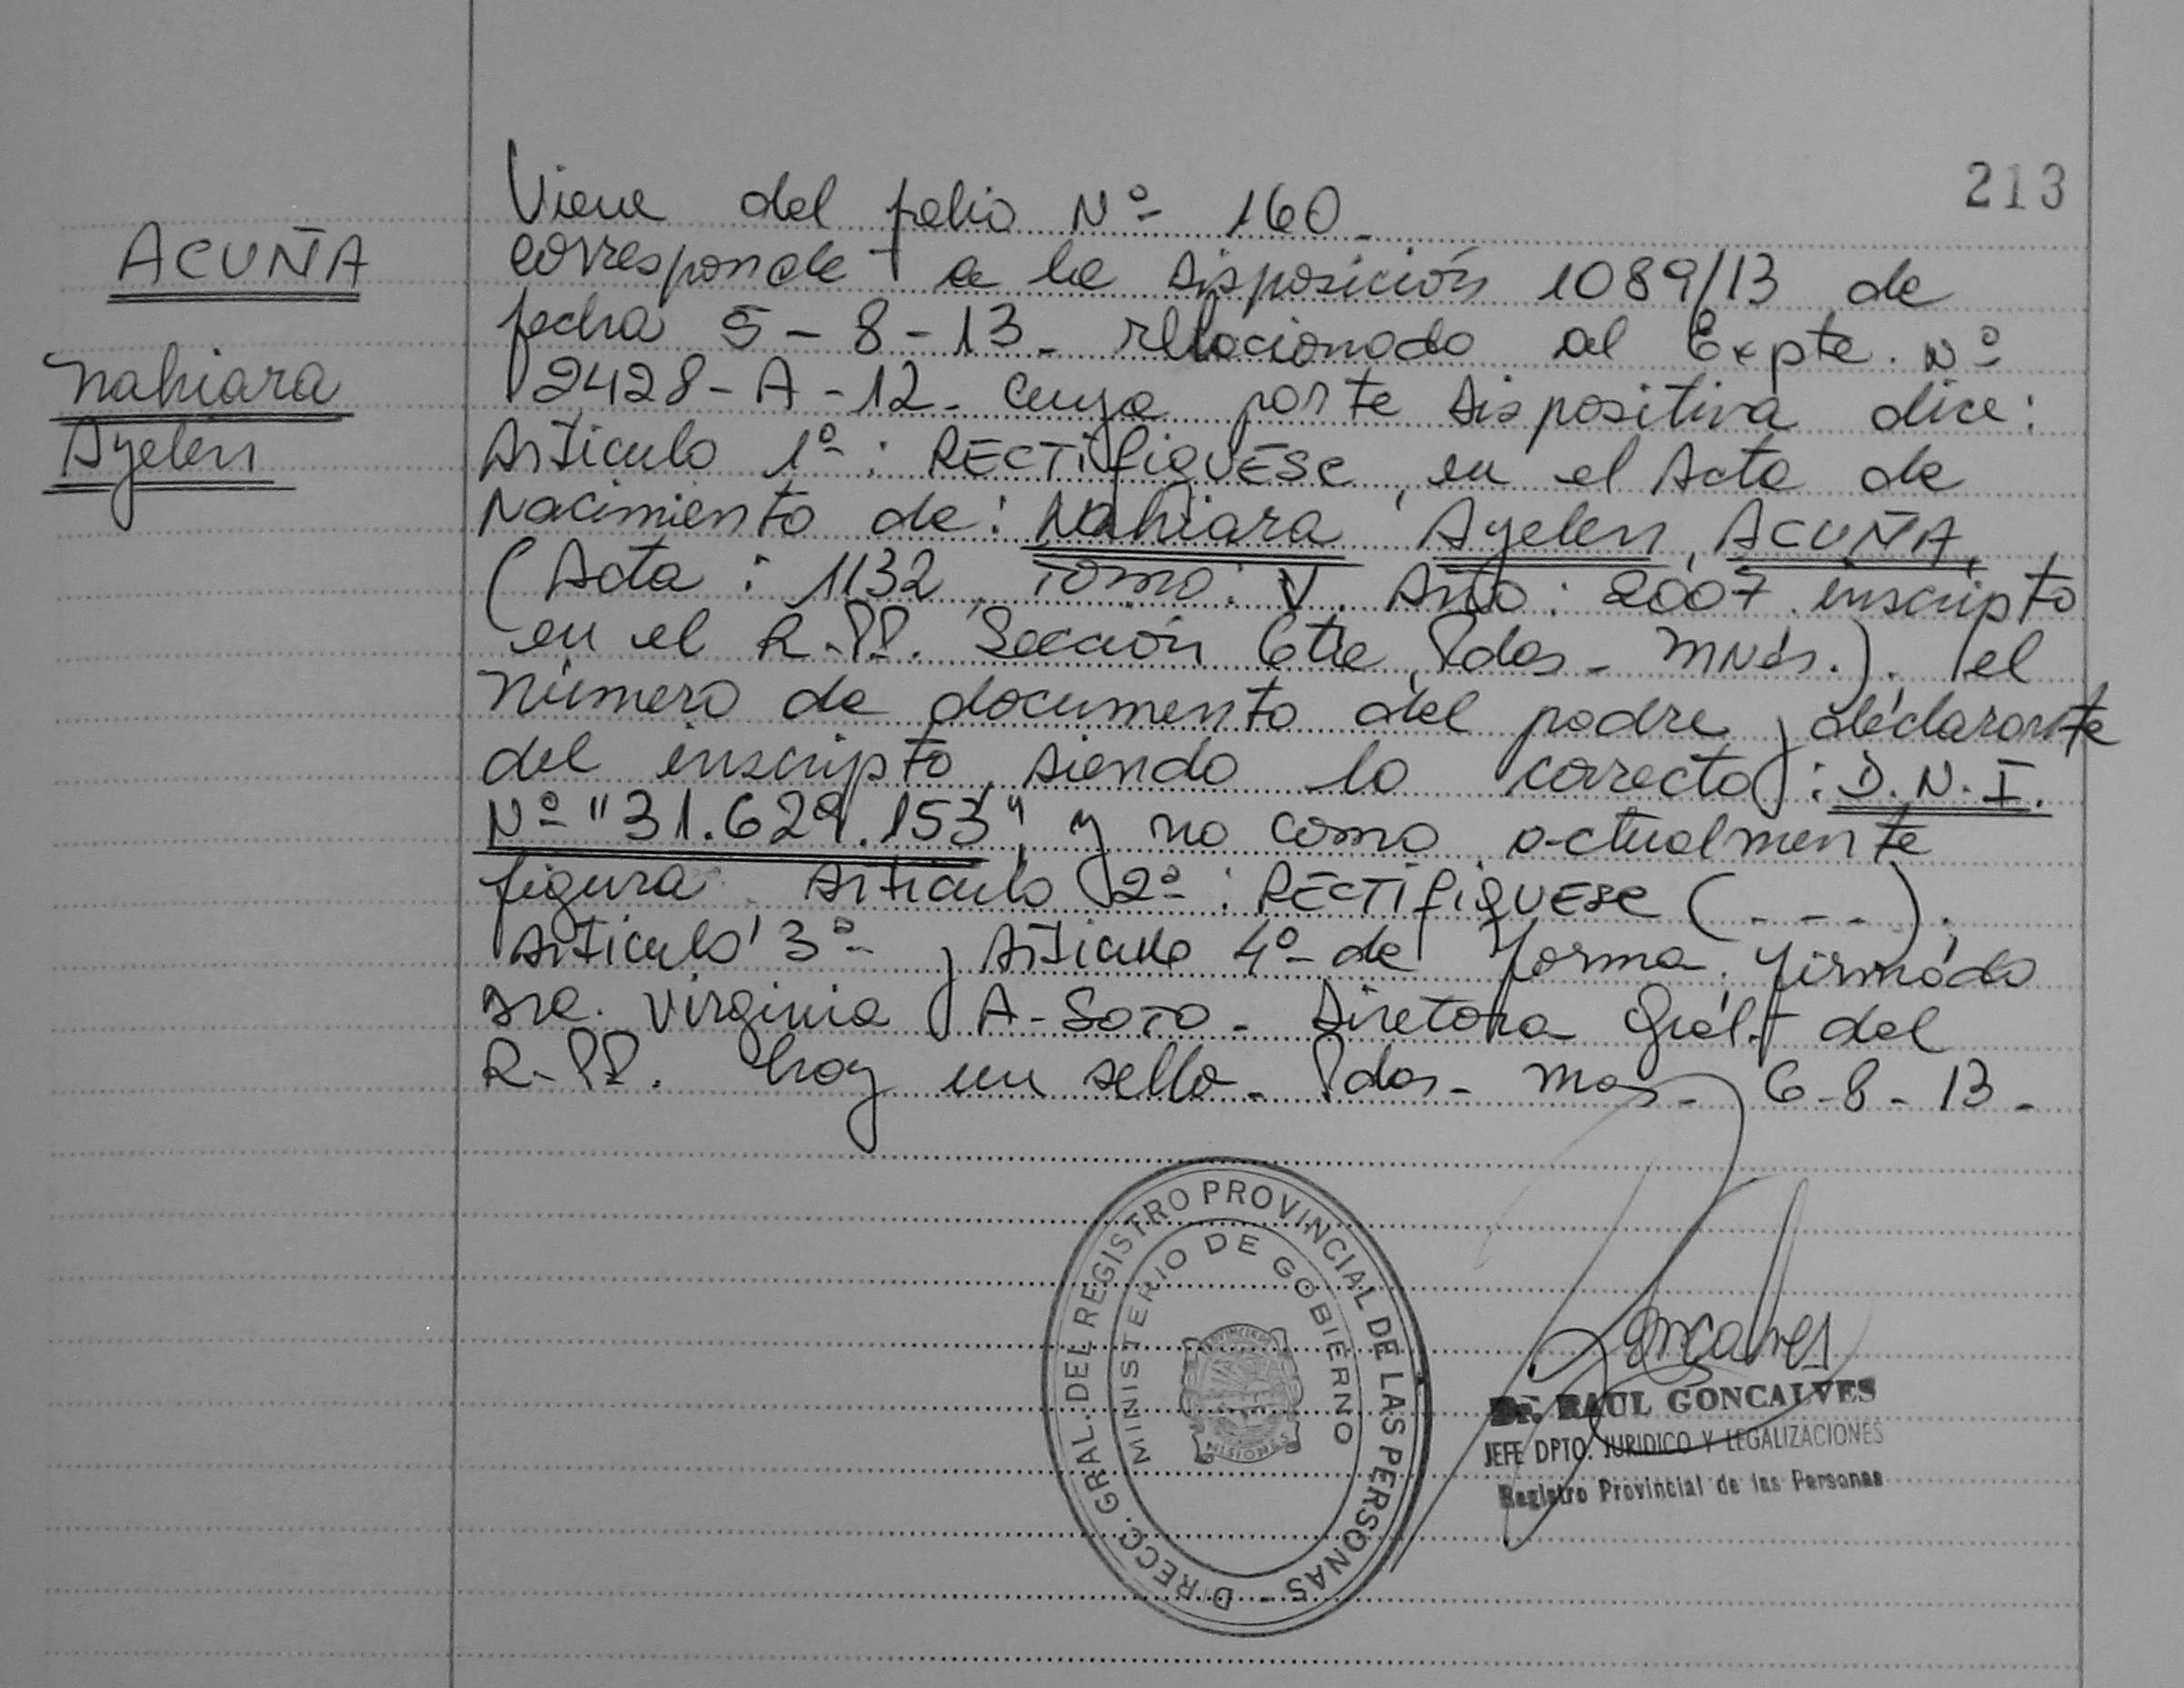 213
ACUÑA
Nahiara
Ayelen
Viene del folio Nº 160_
corresponde a la Disposición 1089/13 de
fecha 5-8-13_ relacionado al Expte. Nº
2428-A-12_ cuya parte dispositiva dice:
Articulo 1º: RECTIFIQUESE, en el Acta de
Nacimiento de: Nahiara Ayelen, ACUÑA,
(Acta: 1132, Tomo: V. Año: 2007 inscripto
en el R.PP. Sección 6tte Pdas_ Mnes.). el
Número de documento del padre y declarante
del inscripto, siendo lo correcto: D.N.I.
Nº "31.629.153", y no como actualmente
figura. Articulo 2º: RECTIFIQUESE (...).
Articulo 3º y Articulo 4º de forma. firmado
Sra. Virginia A-Soto_ Diretora Gral. del
R.PP. hay un sello_ Pdas_ Mns_ 6-8-13_
DIRECC. GRAL. DEL REGISTRO PROVINCIAL DE LAS PERSONAS -
MINISTERIO DE GOBIERNO
PROVINCIA DE
MISIONES
Goncalves
Dr. RAUL GONCALVES
JEFE DPTO. JURIDICO Y LEGALIZACIONES
Registro Provincial de las Personas